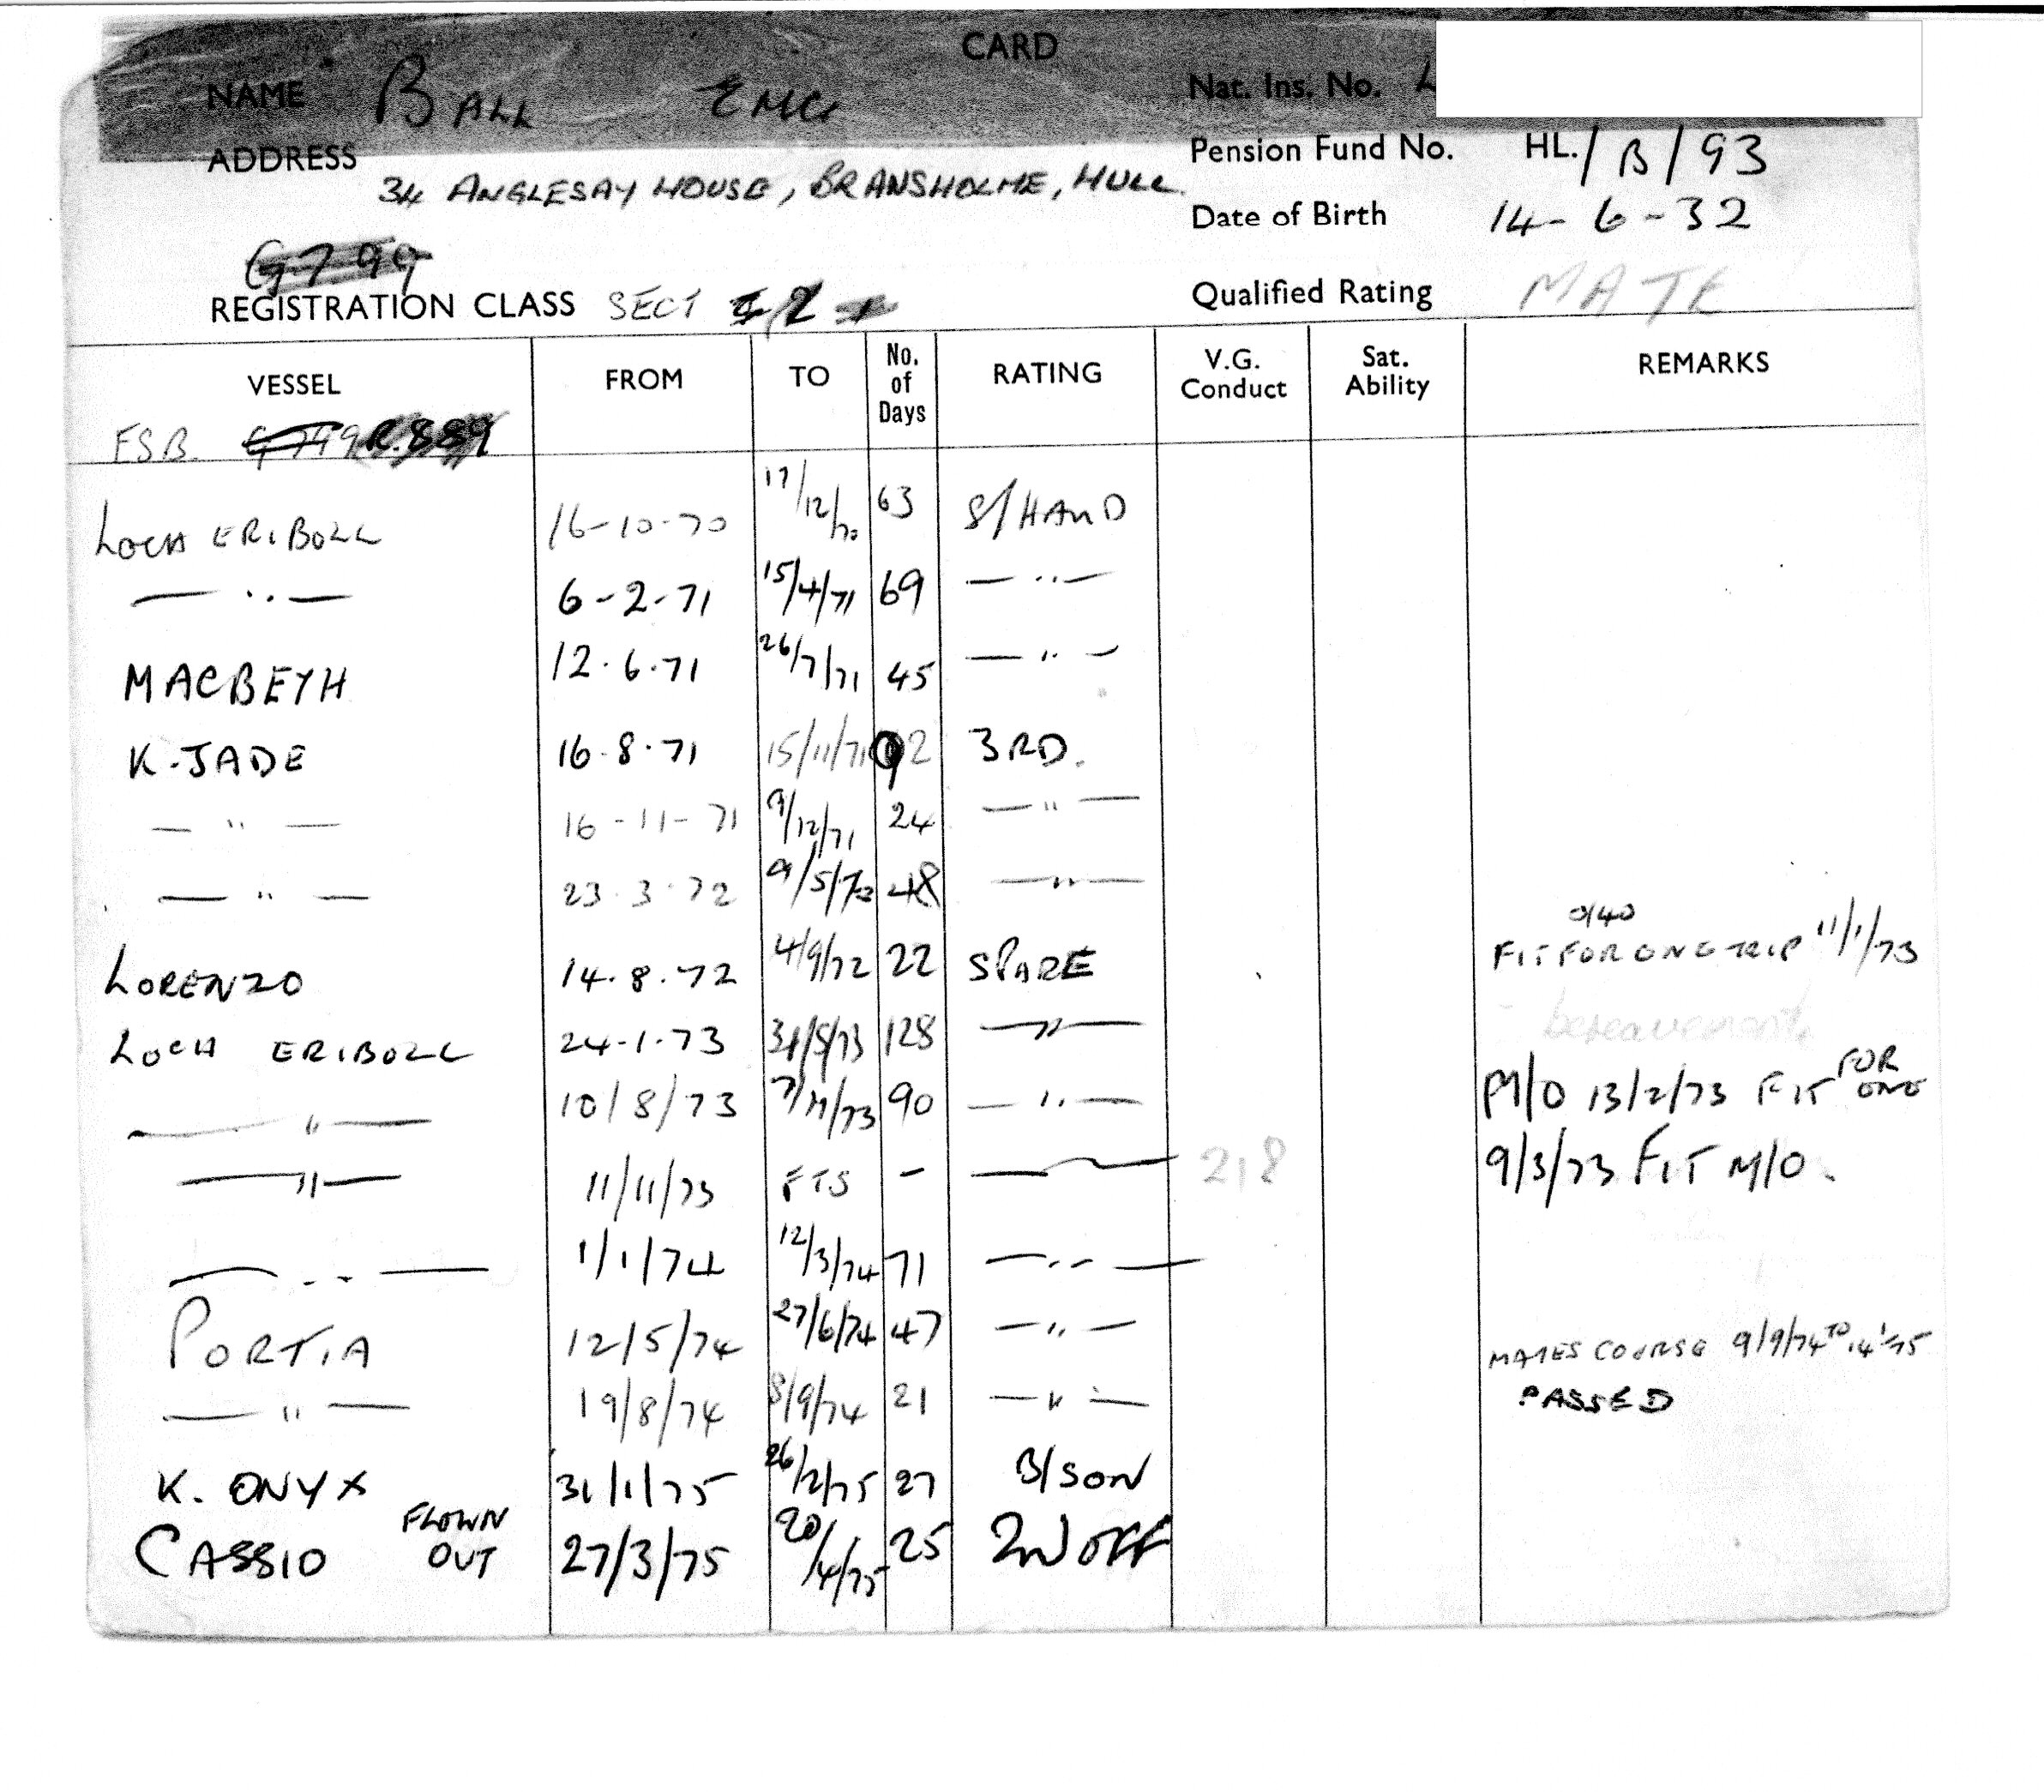 CARD
NAME BALL ERIC Nat. Ins. No. L
ADDRESS Pension Fund No. HL./B/93
34 ANGLESAY HOUSE, BRANSHOLME, HULL Date of Birth 14-6-32
G799
REGISTRATION CLASS SECT 2 Qualified Rating MATE
VESSEL FROM TO No. of Days RATING V.G. Conduct Sat. Ability REMARKS
FSB. G799 R.889
LOCH ERIBOLL 16-10-70 17/12/70 63 S/HAND
— " — 6-2-71 15/4/71 69 — " —
MACBEYH 12.6.71 26/7/71 45 — " —
K.JADE 16.8.71 15/11/71 92 3RD.
— " — 16-11-71 9/12/71 24 — " —
— " — 23.3.72 9/5/72 48 — " —
LORENZO 14.8.72 4/9/72 22 SPARE FIT FOR ONE TRIP 11/1/73
bereavement
LOCH ERIBOLL 24-1-73 31/5/73 128 — " —
— " — 10/8/73 7/11/73 90 — " — M/O 13/2/73 FIT FOR ONE
— " — 11/11/73 FTS - — " — 218 9/3/73 FIT M/O.
— " — 1/1/74 12/3/74 71 — " —
PORTIA 12/5/74 27/6/74 47 — " — MATES COURSE 9/9/74 TO 14/1/75
— " — 19/8/74 8/9/74 21 — " — PASSED
K. ONYX 31/1/75 26/2/75 27 B/SON
CASSIO FLOWN OUT 27/3/75 20/4/75 25 2ND OFF